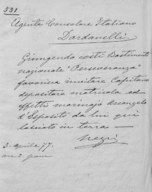 531
Agente Consolare Italiano
Dardanelli
Giungendo costì Bastimento
nazionale "Perseveranza"
favorisca invitare Capitano
depositare matricola ed
effetti marinajo
deposito da lui già
lasciato in terra
3. aprile 77.